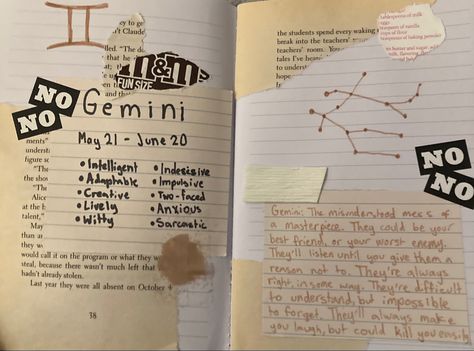 NO
NO
m&m's
FUN SIZE
Gemini
May 21 - June 20
• Intelligent
• Adaptable
• Creative
• Lively
• Witty
• Indesisive
• Impulsive
• Two-faced
• Anxious
• Sarcastic
would call it on the program or what they w
steal, because there wasn't much left that
hadn't already stolen.
Last year they were all absent on October 4
38
the students spend every waking
break into the teachers'
teachers' room. You
than I've
tablespoons of milk
NO
NO
Gemini: The misunderstood mess of
a masterpiece. They could be your
best friend, or your worst enemy.
They'll listen until you give them a
reason not to. They're always
right, in some way. They're difficult
to understand, but impossible
to forget. They'll always make
you laugh, but could kill you easily